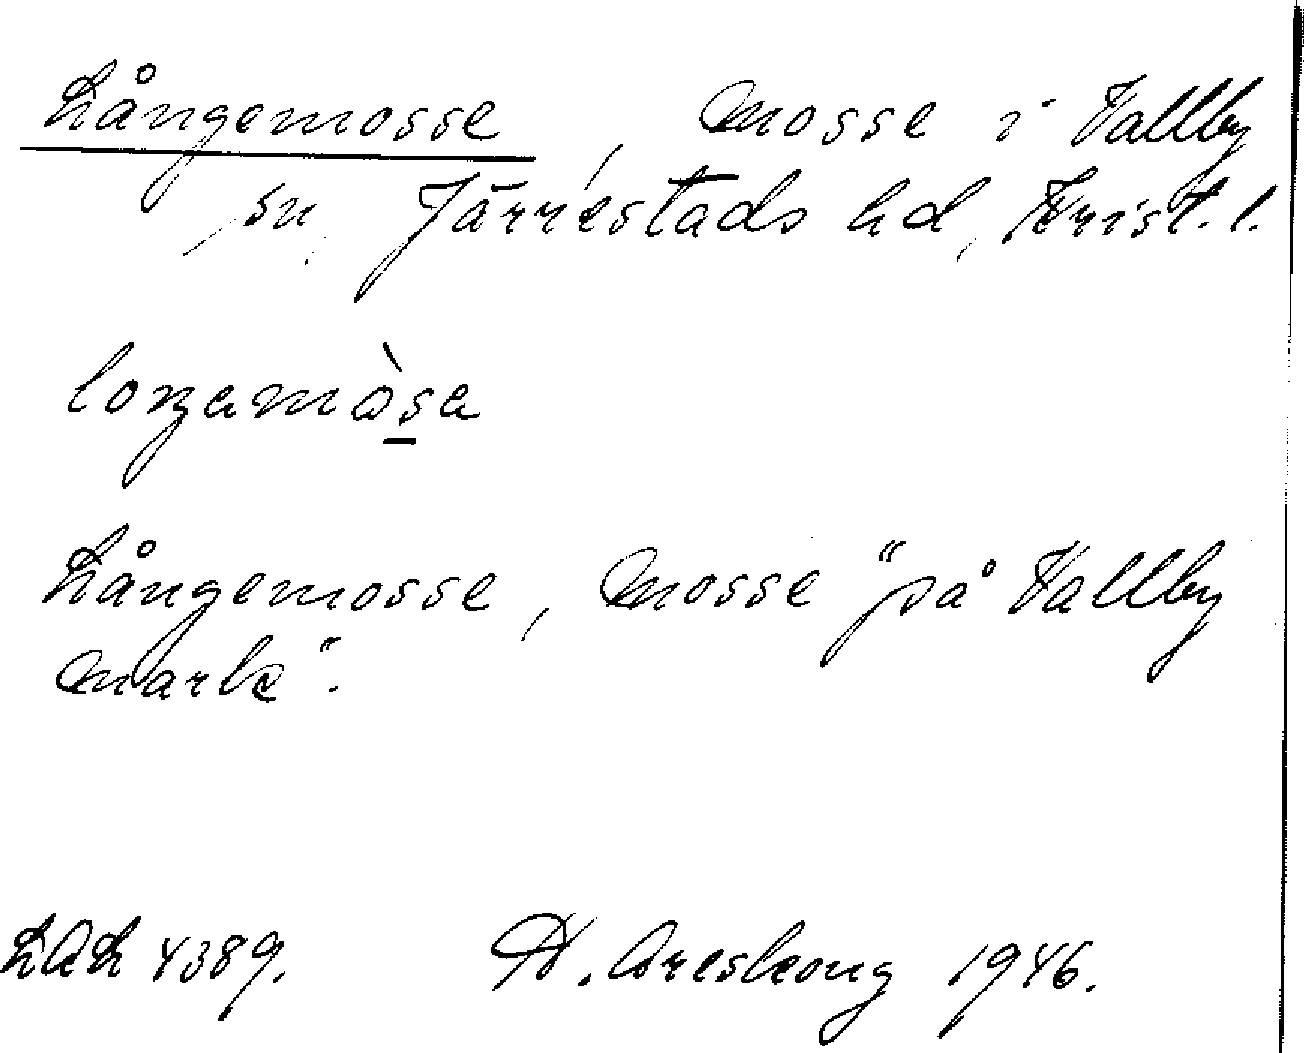 Långemosse, mosse i Vallby
sn, Järrestads hd, Krist. l.
loŋamòsa
Långemosse, mosse "på Vallby
mark".
LAL 4389. H. Areskoug 1946.